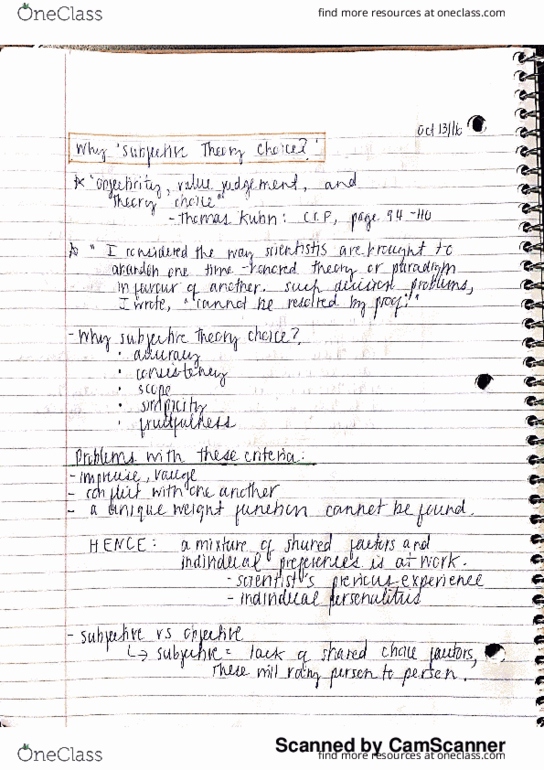 OneClass
find more resources at oneclass.com
Oct 13/16
Why 'Subjective Theory Choice?'
* "Objectivity, value judgement, and
theory choice"
- Thomas Kuhn: C.C.P, page 94-110
* " I considered the way scientists are brought to
abandon one time-honored theory or paradigm
in favour of another. such decision problems,
I wrote, "cannot be resolved by proof."
- Why subjective theory choice?
• accuracy
• consistency
• scope
• simplicity
• fruitfulness
Problems with these criteria:
- imprecise, vauge
- conflict with one another
- a unique weight function cannot be found.
HENCE: a mixture of shared factors and
individual preferences is at work.
- scientist's previous experience
- individual personalities
- subjective vs objective
↳ subjective = lack of shared choice factors,
These will vary person to person.
OneClass
Scanned by CamScanner
find more resources at oneclass.com